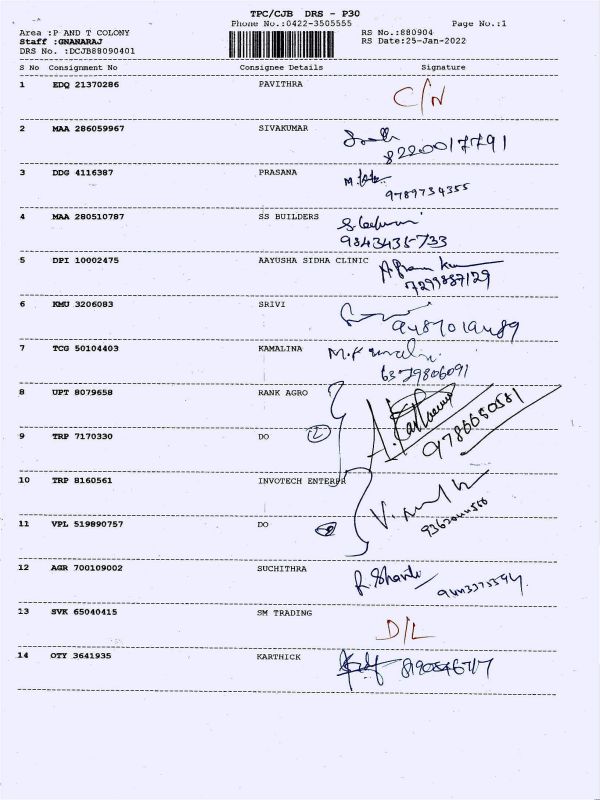 TPC/CJB DRS - P30
Phone No.:0422-3505555 Page No.:1
Area :P AND T COLONY RS No.:880904
Staff :GNANARAJ RS Date:25-Jan-2022
DRS No. :DCJB88090401
S No Consignment No Consignee Details Signature
1 EDQ 21370286 PAVITHRA C/N
2 MAA 286059967 SIVAKUMAR
8220017791
3 DDG 4116387 PRASANA
9789734355
4 MAA 280510787 SS BUILDERS
9843435733
5 DPI 10002475 AAYUSHA SIDHA CLINIC
7299887129
6 KMU 3206083 SRIVI
9487019489
7 TCG 50104403 KAMALINA
6379806091
8 UPT 8079658 RANK AGRO
9786650581
9 TRP 7170330 DO
10 TRP 8160561 INVOTECH ENTERPR
11 VPL 519890757 DO
12 AGR 700109002 SUCHITHRA R. Shanti
13 SVK 65040415 SM TRADING D/L
14 OTY 3641935 KARTHICK